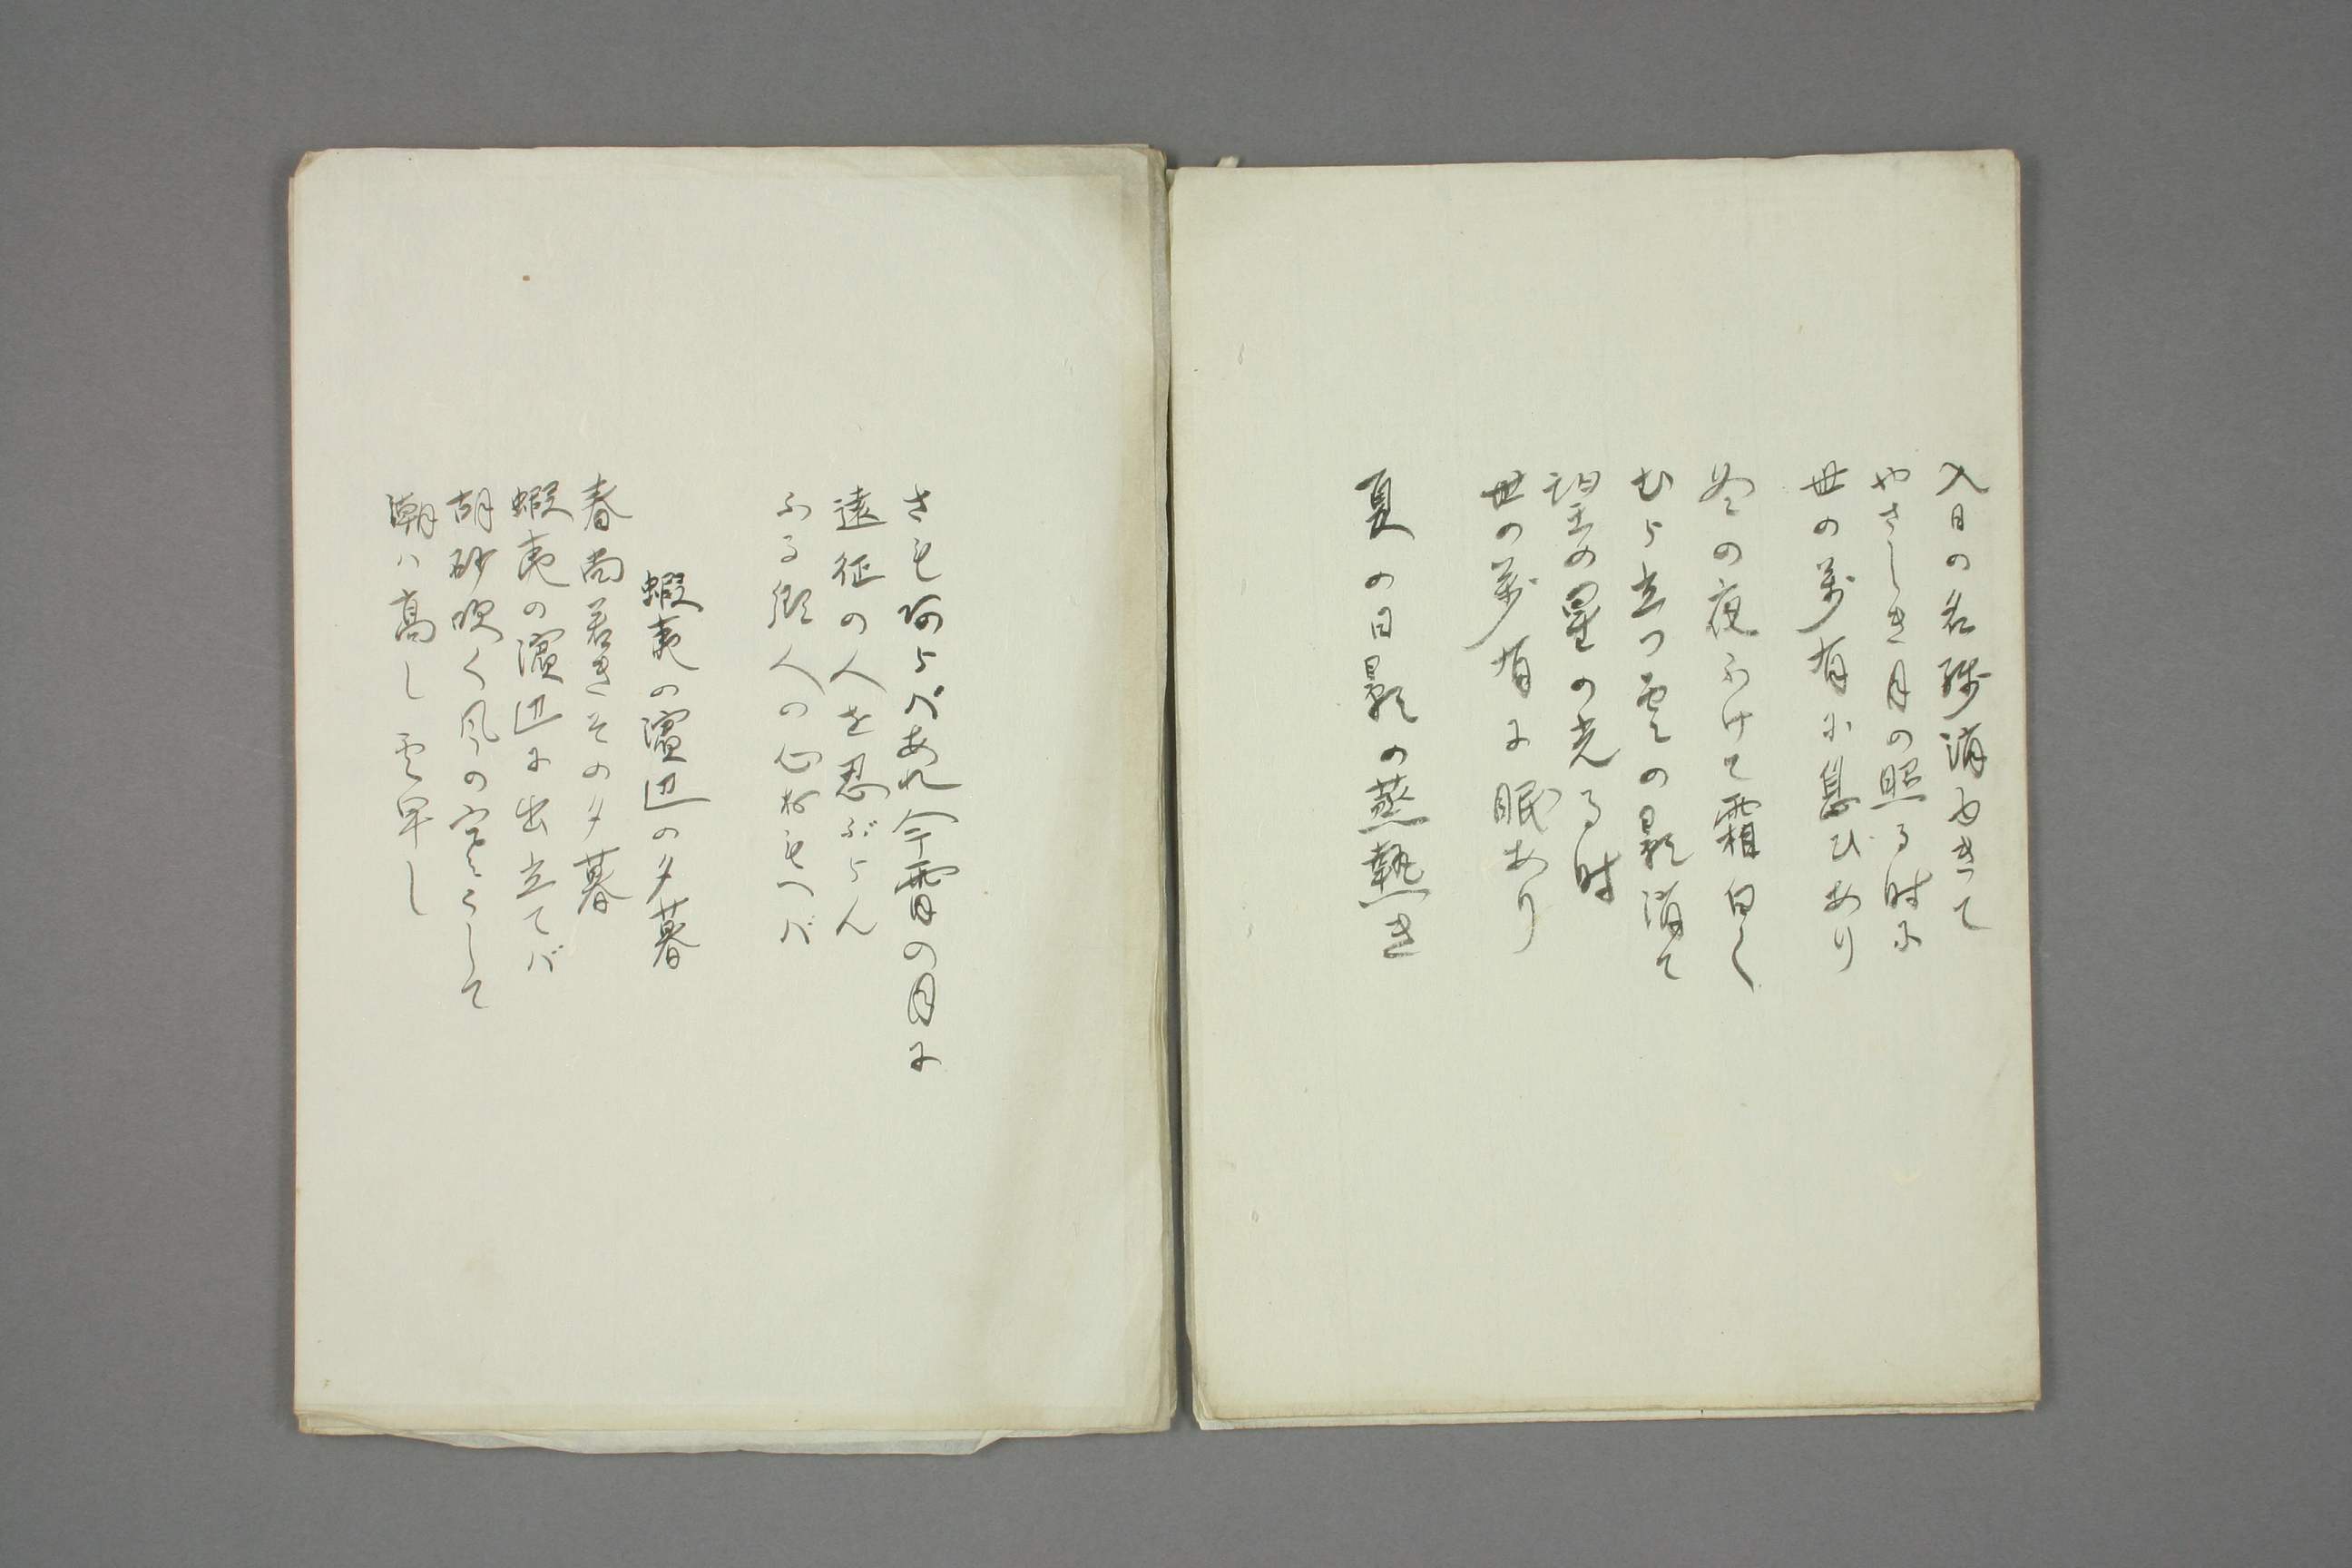 入日の名残消ゆきて
やさしき月の照る時に
世の万有に息ひあり
冬の夜ふけて霜白く
むら立つ雲の影消て
望の星の光る時
世の万有に眠あり
夏の日影の蒸熱き
さもあらばあれ今宵の月に
遠征の人を忍ぶらん
ふる郷人の心おもへば
蝦夷の濱辺の夕暮
春尚若きその夕暮
蝦夷の濱辺に出立てば
胡砂吹く風の寒うして
潮は高し雲早し